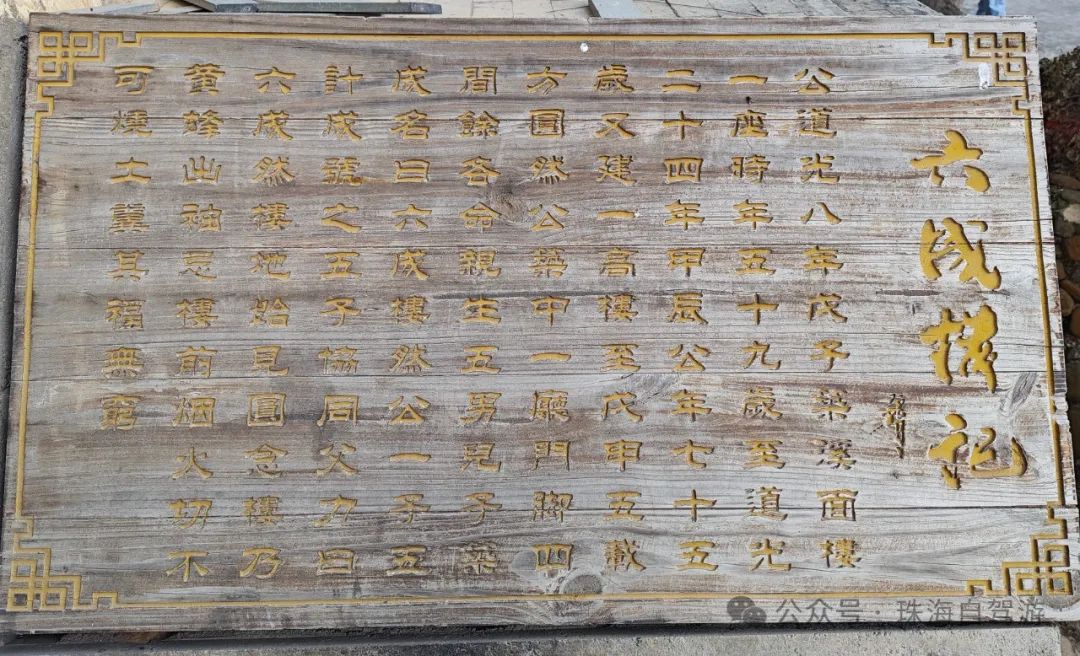 六成樓記
公道光八年戊子築溪面樓
一座時年五十九歲至道光
二十四年甲辰公年七十五
歲又建一高樓至戊申五載
方圓然公築中一廳門脚四
間餘各命親生五男兒子築
成名曰六成樓然公一子五
計成號之五子協同父力曰
六成然樓地始見圓念樓乃
蜂出袖忌樓前烟火切不
可燒土糞其福無窮
公众号·珠海自驾游